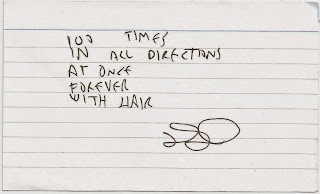 100 TIMES
IN ALL DIRECTIONS
AT ONCE
FOREVER
WITH HAIR